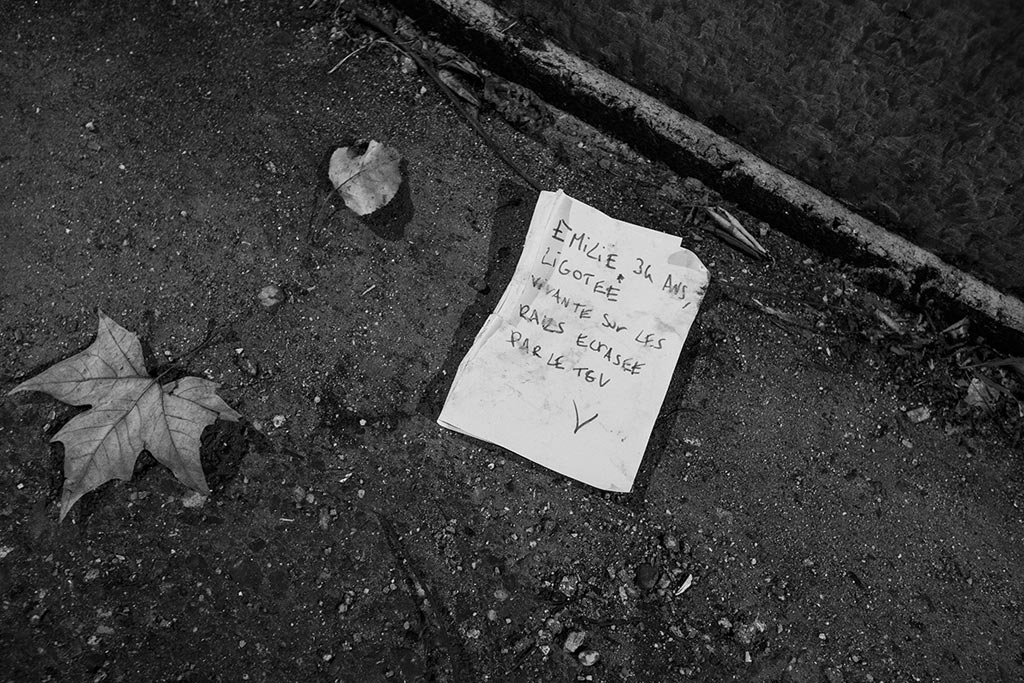 EMILIE 34 ANS,
LIGOTEE
VIVANTE SUR LES
RAILS ECRASEE
PAR LE TGV
V